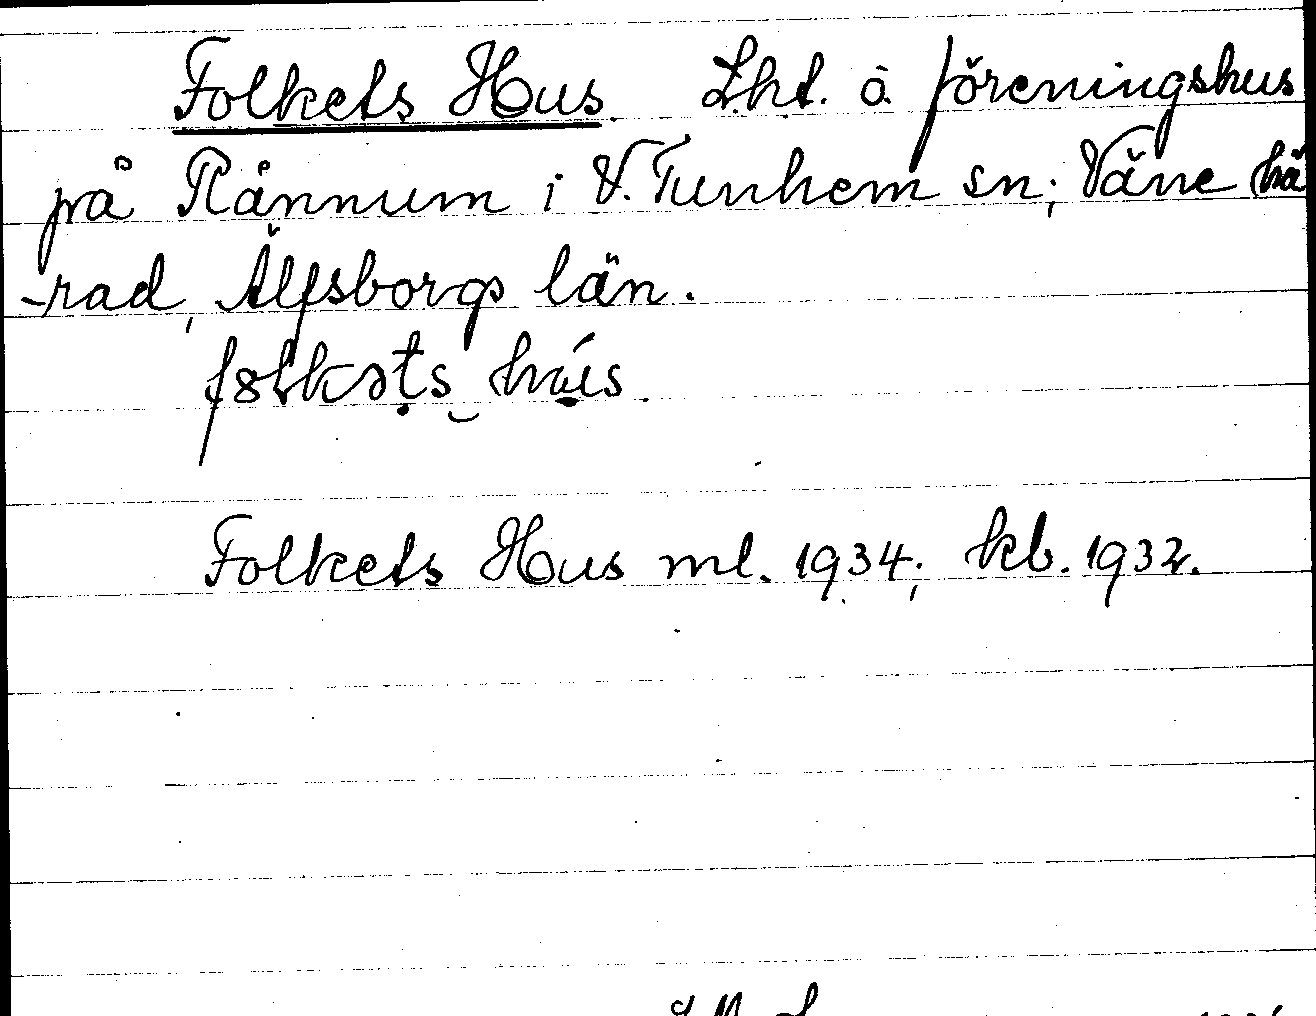 Folkets Hus. Lht. å föreningshus
på Rånnum i V. Tunhem sn; Väne hä
-rad, Älfsborgs län.
Folkets Hus ml. 1934; kb. 1932.